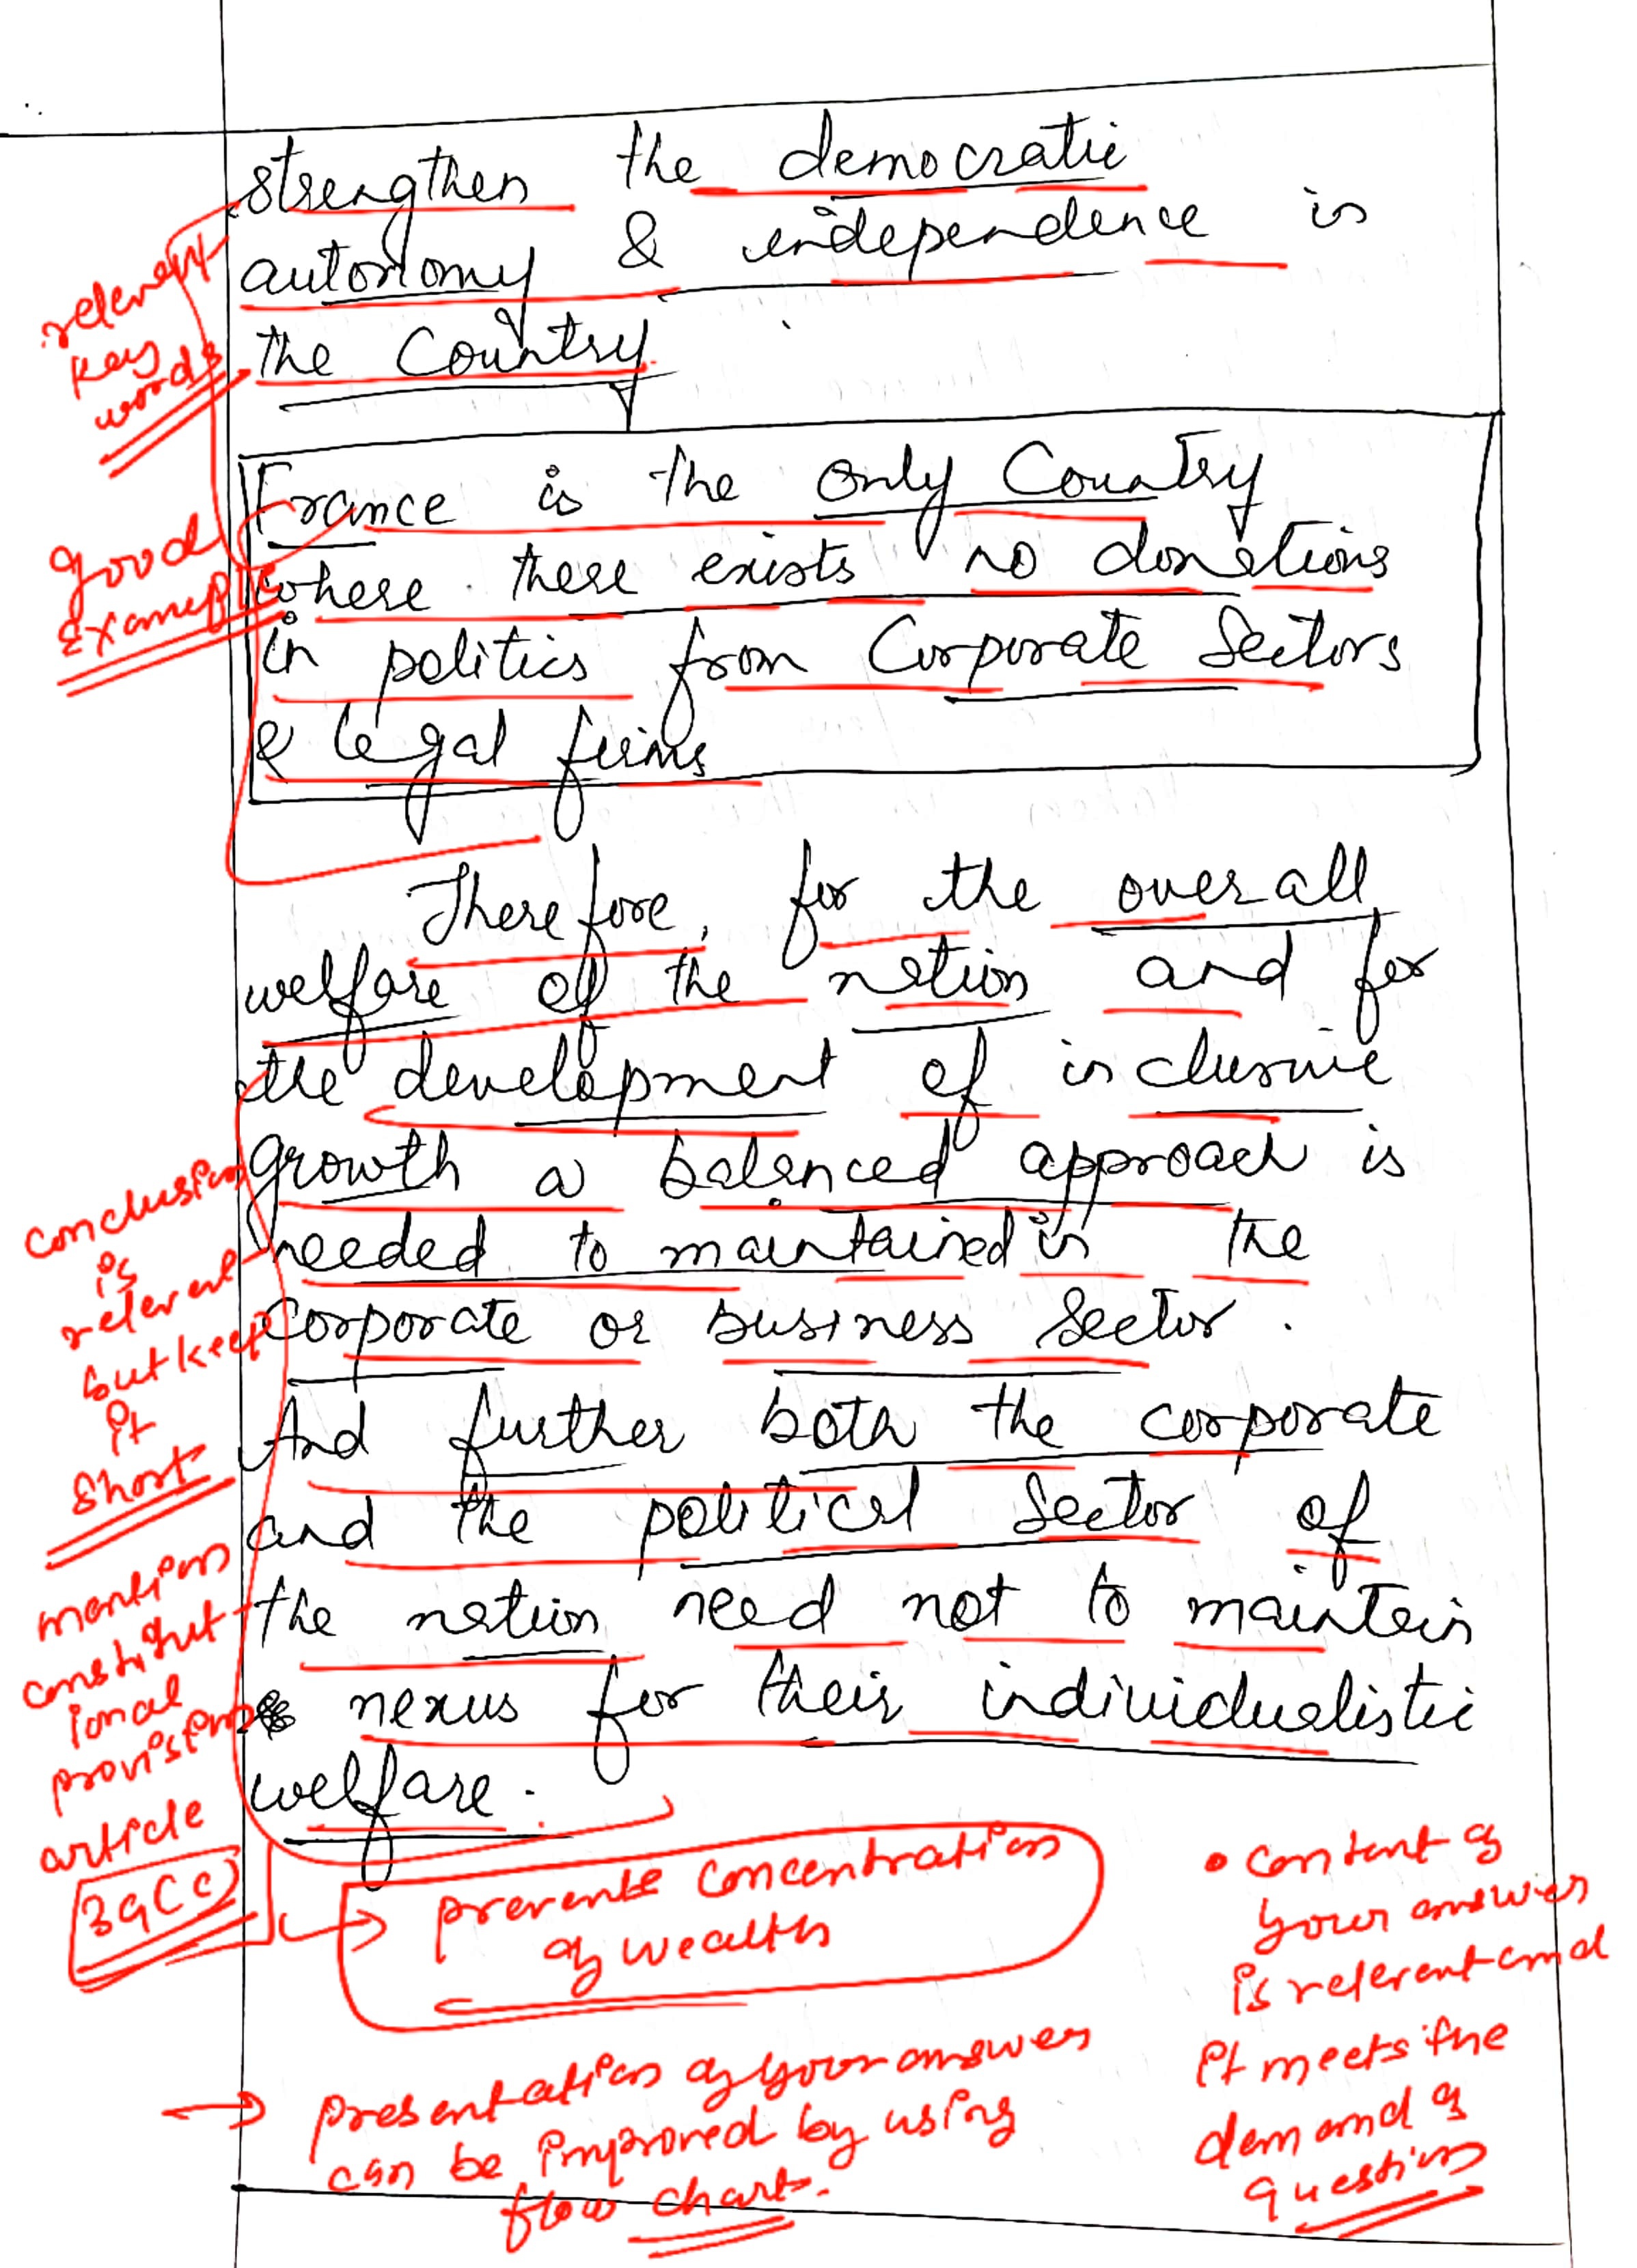 strengthen the democratic
autonomy & independence in
the Country
relevant
key
words
France is the only Country
where there exists no donations
in politics from Corporate Sectors
& legal firms
good
Example
Therefore, for the overall
welfare of the nation and for
the development of inclusive
growth a balanced approach is
needed to maintained in the
corporate or business sector.
And further both the corporate
and the political sector of
the nation need not to maintain
nexus for their individualistic
welfare.
conclusion
is
relevent
but keep
it
short
mention
constitut
ional
provision
article
39(c)
prevents concentration
of wealth
• content of
your answer
is relevent and
it meets the
demand of
question
→ presentation of your answer
can be improved by using
flow chart.